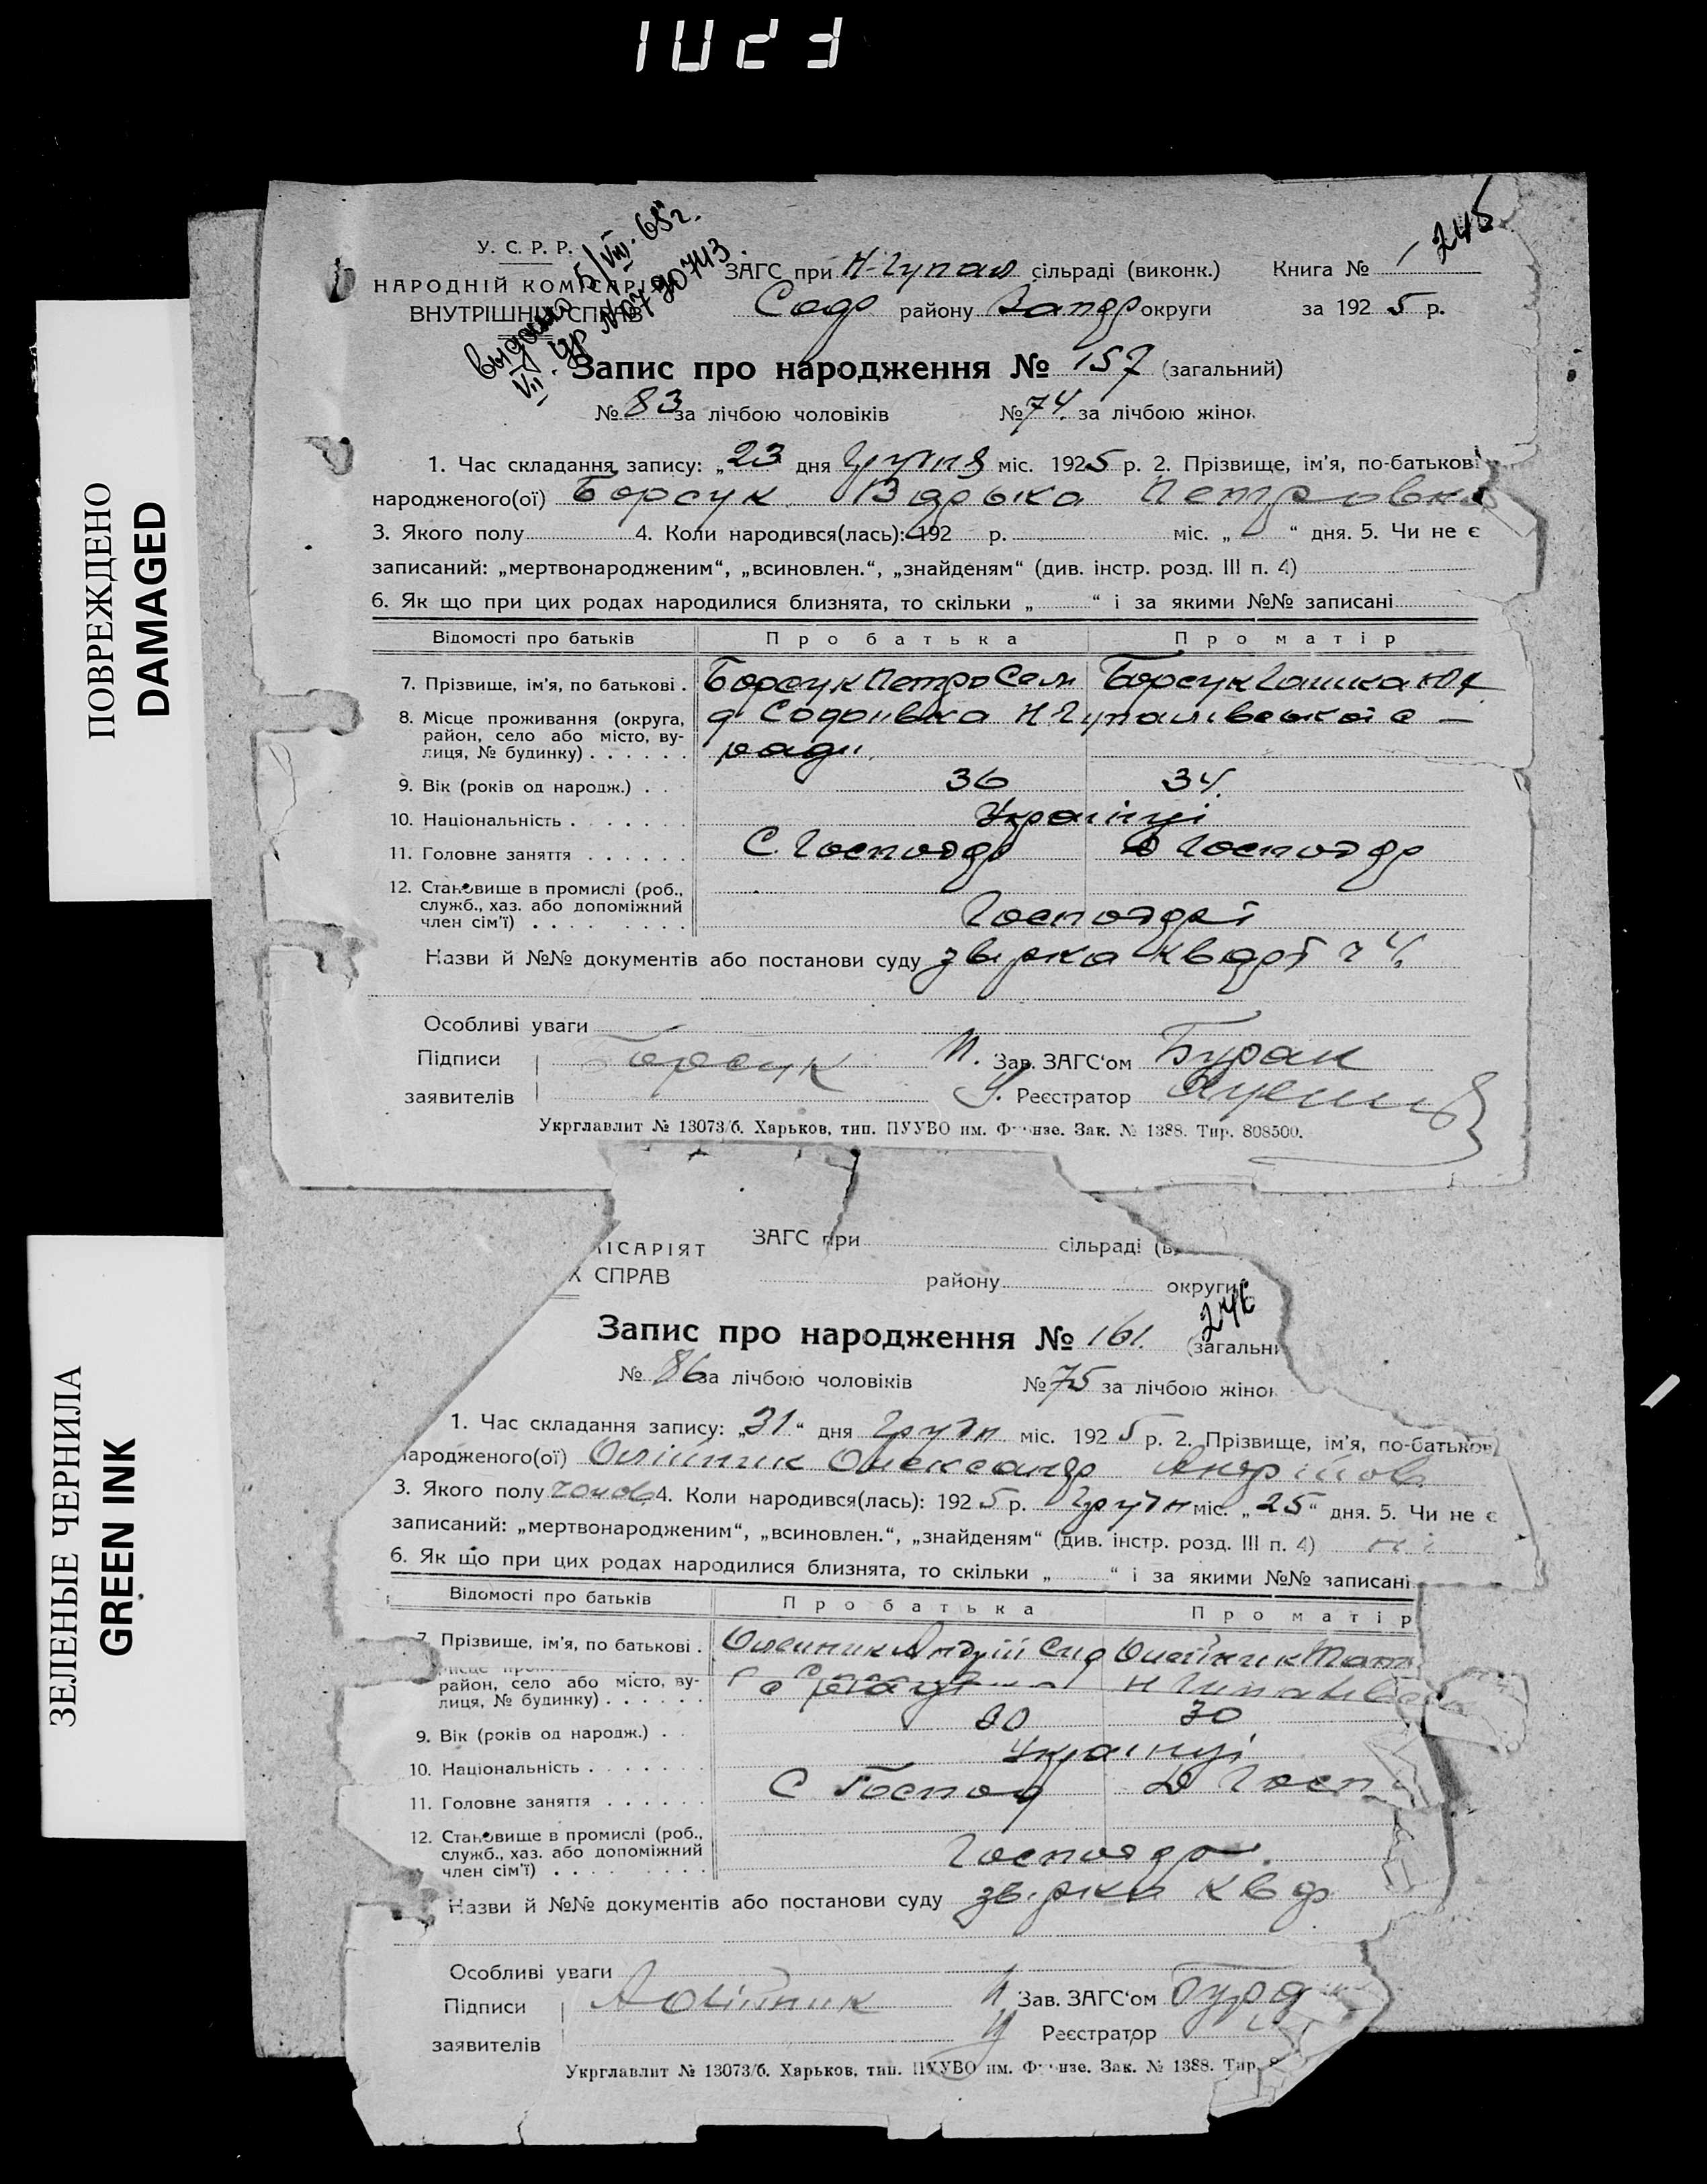 1023
ПОВРЕЖДЕНО
DAMAGED
ЗЕЛЕНЫЕ ЧЕРНИЛА
GREEN INK
245
У. С. Р. Р.
НАРОДНІЙ КОМІСАРІЯ
ВНУТРІШНІХ СПРАВ
выдано 5/VIII. 65г.
ЗАГС при Н-Чупал сільраді (виконк.) Книга №
району Запор округи за 1925 р.
Запис про народження № 157 (загальний)
№ 83 за лічбою чоловіків № 74. за лічбою жінок
1. Час складання запису: „23 дня грудня міс. 1925 р. 2. Прізвище, ім'я, по-батькові
народженого(ої) Борсук Петровна
3. Якого полу 4. Коли народився(лась): 192 р. міс. „ “ дня. 5. Чи не є
записаний: „мертвонародженим“, „всиновлен.“, „знайденям“ (див. інстр. розд. III п. 4)
6. Як що при цих родах народилися близнята, то скільки „ “ і за якими №№ записані
Відомості про батьків Про батька Про матір
7. Прізвище, ім'я, по батькові . Борсук Петро Сем Борсук
8. Місце проживання (округа, район, село або місто, вулиця, № будинку) . . . . . . Нчупалівської с-
ради
9. Вік (років од народж.) . . 36 34.
10. Національність . . . . . . . Українці
11. Головне заняття . . . . . . С. Господр Д Господр
12. Становище в промислі (роб., служб., хаз. або допоміжний член сім'ї) . . . . . . . . Господрі
Назви й №№ документів або постанови суду звірка кварт ч 4.
Особливі уваги
Підписи Борсук П. Зав. ЗАГС'ом Бурак
заявителів У. Реєстратор
Укрглавлит № 13073/б. Харьков, тип. ПУУВО им. Фрунзе. Зак. № 1388. Тир. 808500.
ІСАРІЯТ ЗАГС при сільраді (в
Х СПРАВ району округи
246
Запис про народження № 161. (загальни
№ 86 за лічбою чоловіків № 75 за лічбою жінок
1. Час складання запису: „31“ дня грудн міс. 1925 р. 2. Прізвище, ім'я, по-батькові
народженого(ої) Олійник Олександр Андрійов
3. Якого полу чолов 4. Коли народився(лась): 1925 р. Грудн міс. „25“ дня. 5. Чи не є
записаний: „мертвонародженим“, „всиновлен.“, „знайденям“ (див. інстр. розд. III п. 4) ні
6. Як що при цих родах народилися близнята, то скільки „ “ і за якими №№ записані
Відомості про батьків Про батька Про матір
7. Прізвище, ім'я, по батькові . Олейник Андрій Сид Олейник Тат
район, село або місто, вулиця, № будинку) . . . . . .
9. Вік (років од народж.) . . 30 30
10. Національність . . . . . . . Українці
11. Головне заняття . . . . . . С Господ Д Госп
12. Становище в промислі (роб., служб., хаз. або допоміжний член сім'ї) . . . . . . . . Господр
Назви й №№ документів або постанови суду звірка квар
Особливі уваги
Підписи А Олійник П Зав. ЗАГС'ом Бура
заявителів У Реєстратор
Укрглавлит № 13073/б. Харьков, тип. ПУУВО им. Фрунзе. Зак. № 1388. Тир.